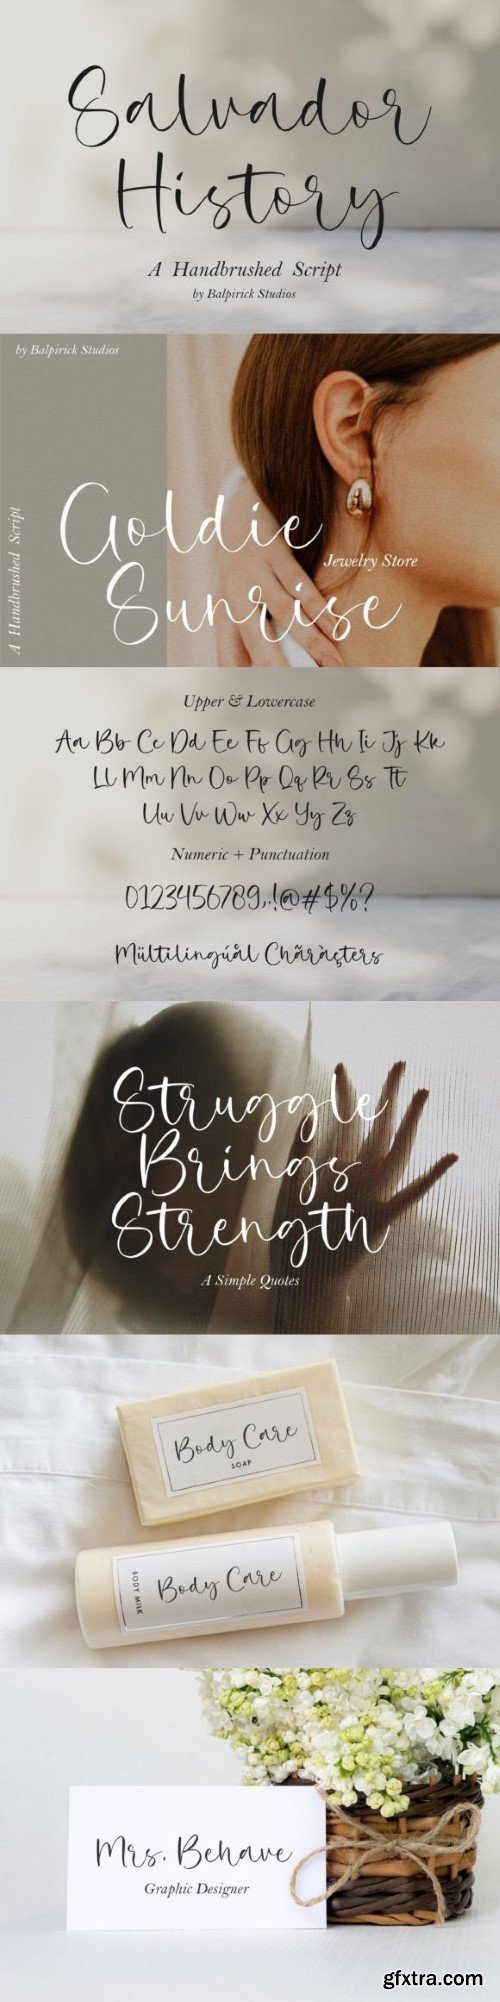 Salvador
History
A Handbrushed Script
by Balpirick Studios
by Balpirick Studios
A Handbrushed Script
Goldie
Jewelry Store
Sunrise
Upper & Lowercase
Aa Bb Cc Dd Ee Ff Gg Hh Ii Jj Kk
Ll Mm Nn Oo Pp Qq Rr Ss Tt
Uu Vv Ww Xx Yy Zz
Numeric + Punctuation
0123456789,.!@#$%?
Mültilingúål Chãràçters
Struggle
Brings
Strength
A Simple Quotes
Body Care
SOAP
BODY MILK
Body Care
Mrs. Behave
Graphic Designer
gfxtra.com